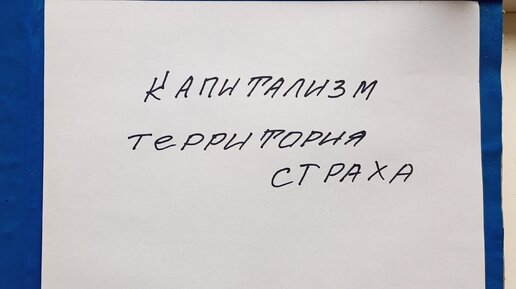 КАПИТАЛИЗМ
ТЕРРИТОРИЯ
СТРАХА